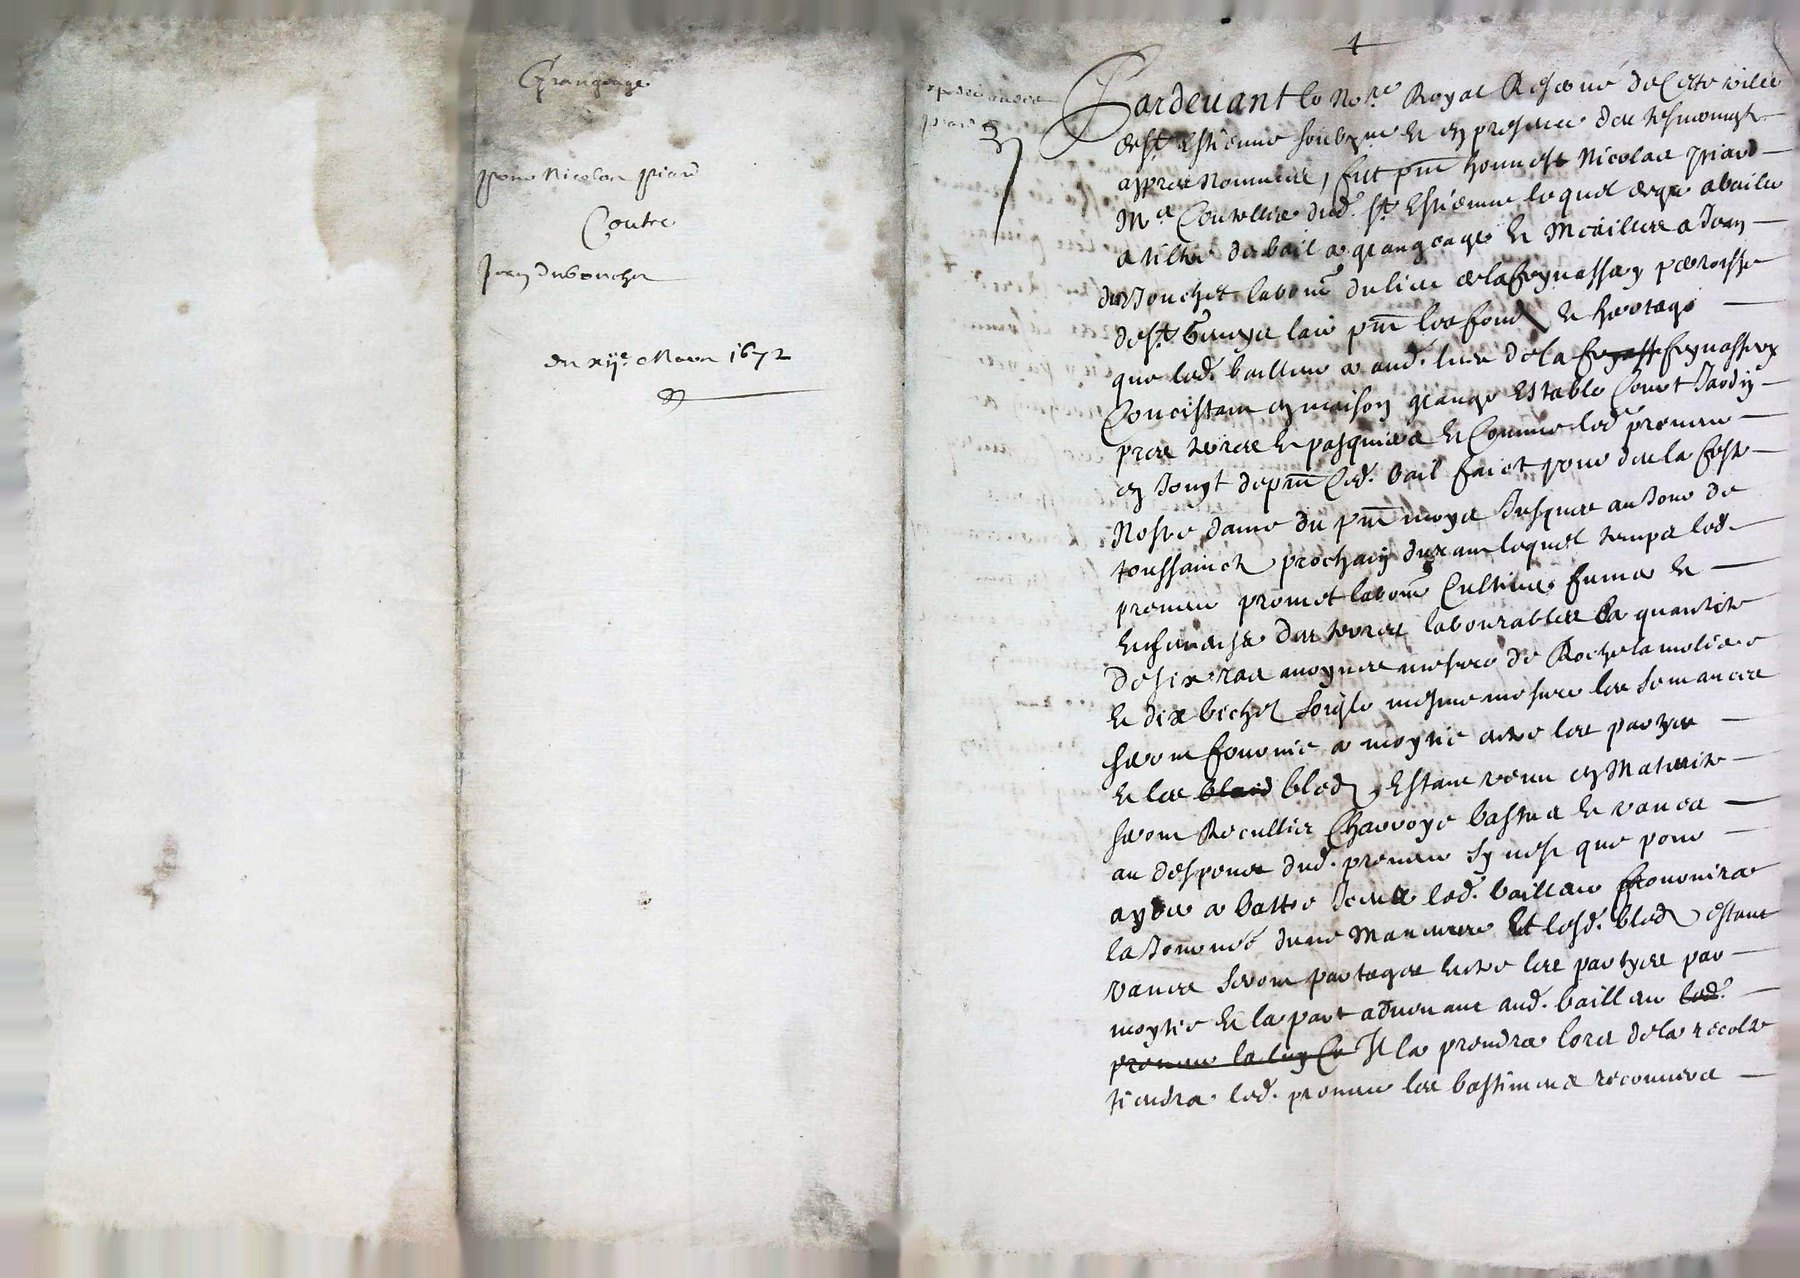 Grangeage
pour Nicolas piard
Contre
Jean Duboucher
du xije Mars 1672
expedié audit
piard
Pardevant le Nore Royal Reservé de Ceste ville
de St Estienne soubzne et en presence des tesmoingz
appres nommes, fut pnt honneste Nicolas piard
Me Coutellier dud. St Estienne lequel de gre a baille
a tiltre de bail a grangeage et Meaillere a Jean
duBouchet labour du lieu de la feynassey parroisse
de St Geneys lair pnt les fondz et heritage
que led. bailleur a aud. lieu de la feynassey
Concistans en maison grange Estable Court Jardin
pres terres et pasquiers et Comme led. preneur
en Jouyt de pnt Ced. bail faict pour des la feste
Nostre dame du pnt moys Jusques au Jour de
toussainctz prochain durant lequel temps led.
preneur promet labourer Cultiver fumer et
Ensemenser des terres labourables la quantite
de six ras avoynes mesure de Rochelamoliere
et dix bichetz soigle mesme mesure les semances
seront fournie a moytie entre les partyes
et les bledz Estant venu en Maturite
seront Recullier Charroye battre et vanes
au despens dud. preneur sy nest que pour
ayder a battre Iceux led. bailleur fournira
la Journeé dune Maneuvre Et lesd. bledz estant
vanes seront partages entre les partyes par
moytie et la part advenant aud. bailleur led.
preneur la luy Il la prendra lors de la recolte
tiendra led. preneur les bastimens reconvers